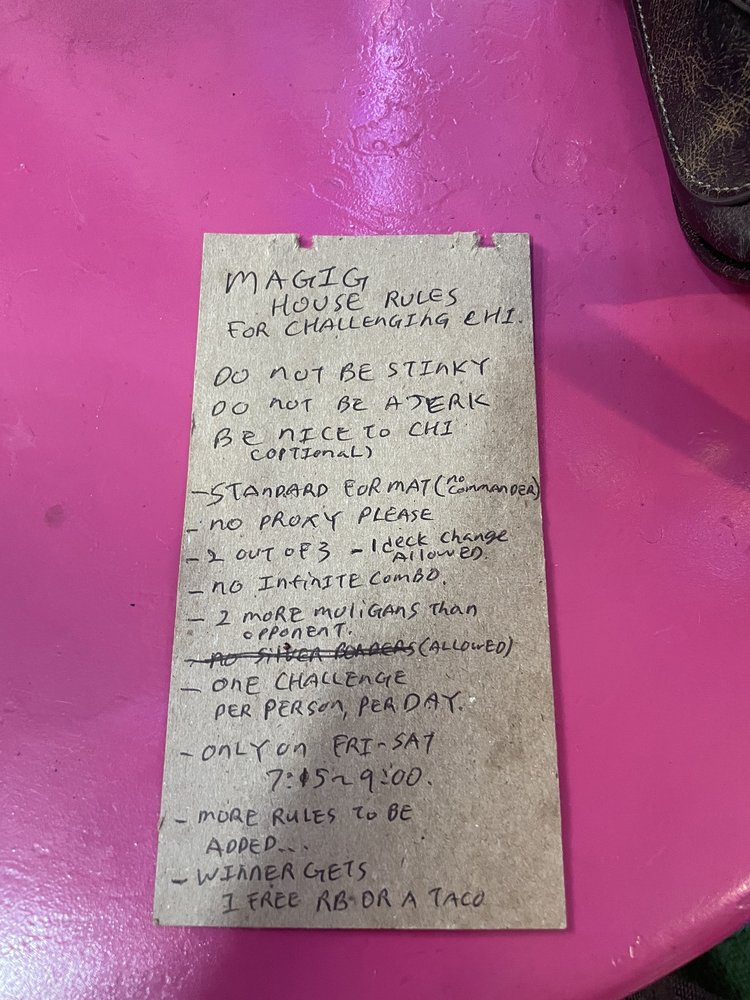 MAGIG
HOUSE RULES
FOR CHALLENGING CHI.
DO NOT BE STINKY
DO NOT BE A JERK
BE NICE TO CHI
(OPTIONAL)
- STANDARD FORMAT (no COMMANDER)
- NO PROXY PLEASE
- 2 OUT OF 3 - 1 deck change
ALLOWED.
- NO INFINITE COMBO.
- 2 MORE MULIGANS Than
OPPONENT.
- NO SILVER BOADERS (ALLOWED)
- ONE CHALLENGE
PER PERSON, PER DAY.
- ONLY ON FRI-SAT
7:15~9:00.
- MORE RULES TO BE
ADDED...
- WINNER GETS
1 FREE RB OR A TACO